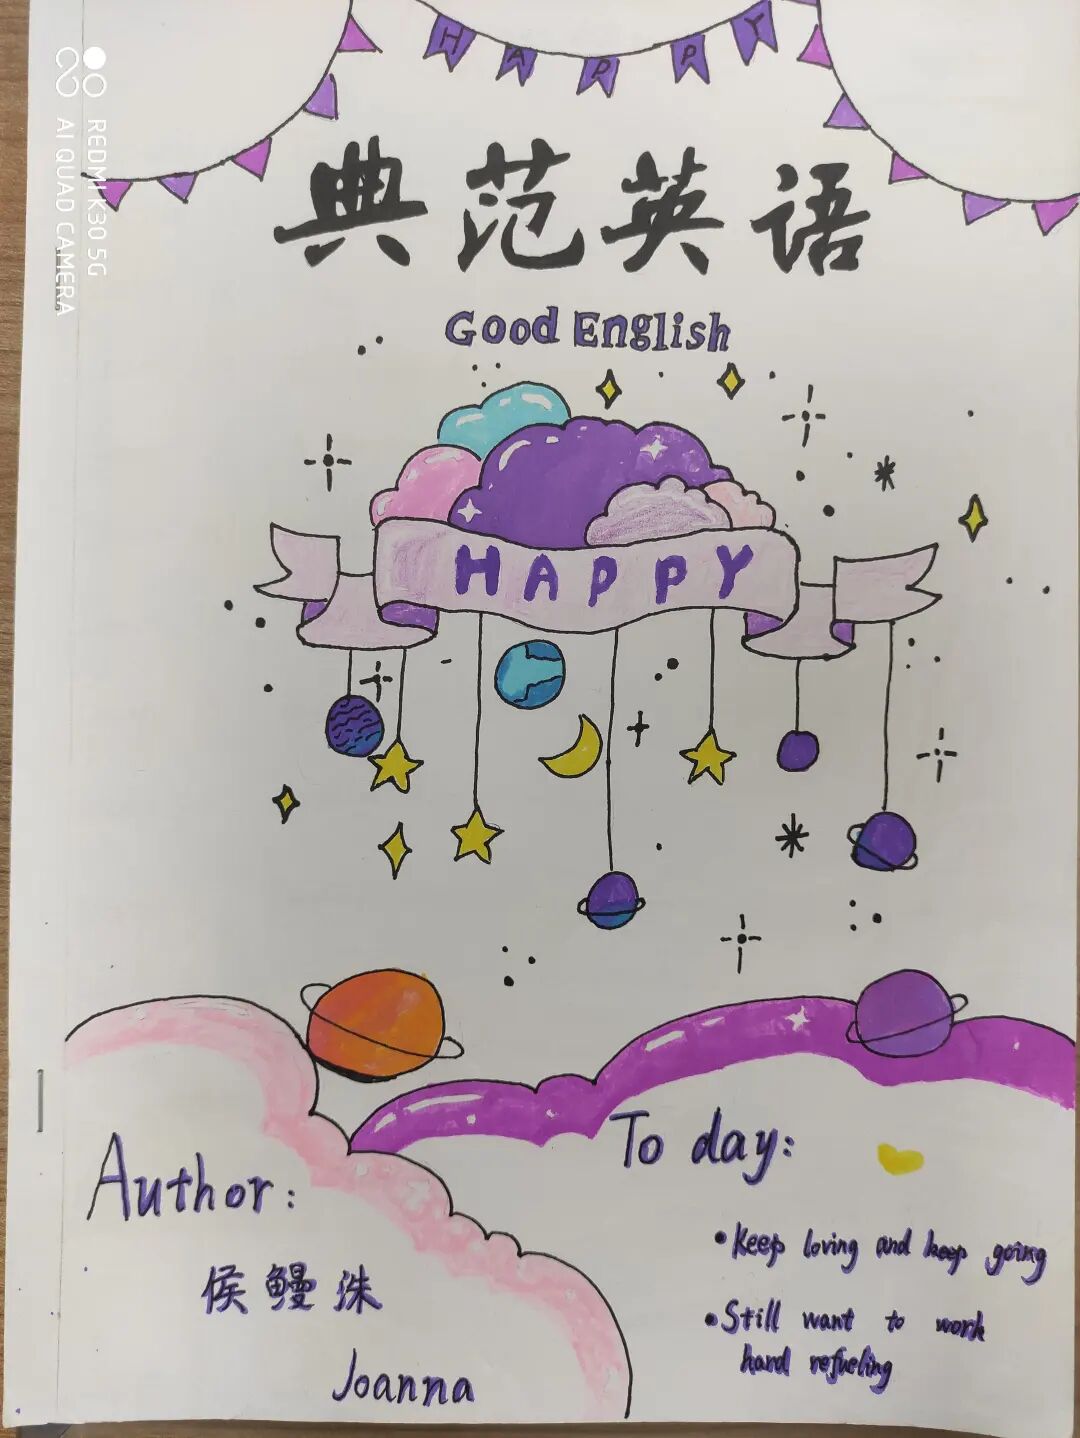 HAPPY
典范英语
Good English
HAPPY
Author:
侯鳗洙
Joanna
To day:
•Keep loving and keep going
•Still want to work
hard refueling
REDMI K30 5G
AI QUAD CAMERA